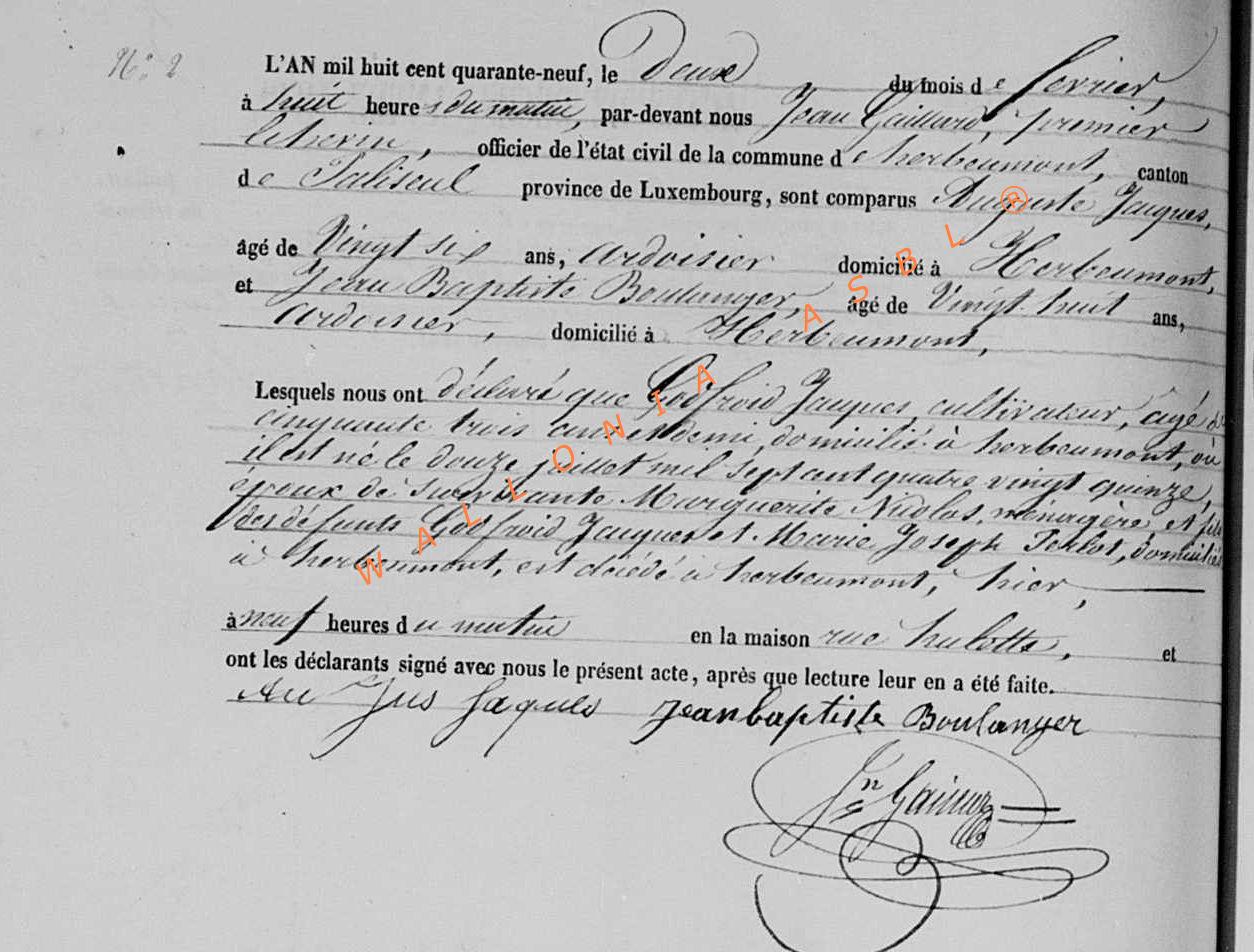 N° 2
L'AN mil huit cent quarante-neuf, le Deux du mois de fevrier,
à huit heures du matin, par-devant nous Jean Gaillard, premier
échevin, officier de l'état civil de la commune d'herbeumont, canton
de Paliseul province de Luxembourg, sont comparus Auguste Jacques,
âgé de Vingt six ans, ardoisier domicilié à Herbeumont,
et Jean Baptiste Boulanger, âgé de Vingt huit ans,
ardoisier, domicilié à Herbeumont,
Lesquels nous ont déclaré que Godfroid Jacques, cultivateur, agé de
cinquante trois ans et demi, domicilié à herbeumont, où
il est né le douze juillet mil sept cent quatre vingt quinze,
époux de survivante Marguerite Nicolas, ménagère et fils
des défunts Godfroid Jacques et Marie Joseph, domiciliés
à herbeumont, est décédé à herbeumont, hier,
à neuf heures du matin en la maison rue hulotte, et
ont les déclarants signé avec nous le présent acte, après que lecture leur en a été faite.
Au Jus Jaques Jeanbaptiste Boulanger
Jn
WALLONIA ASBL ®